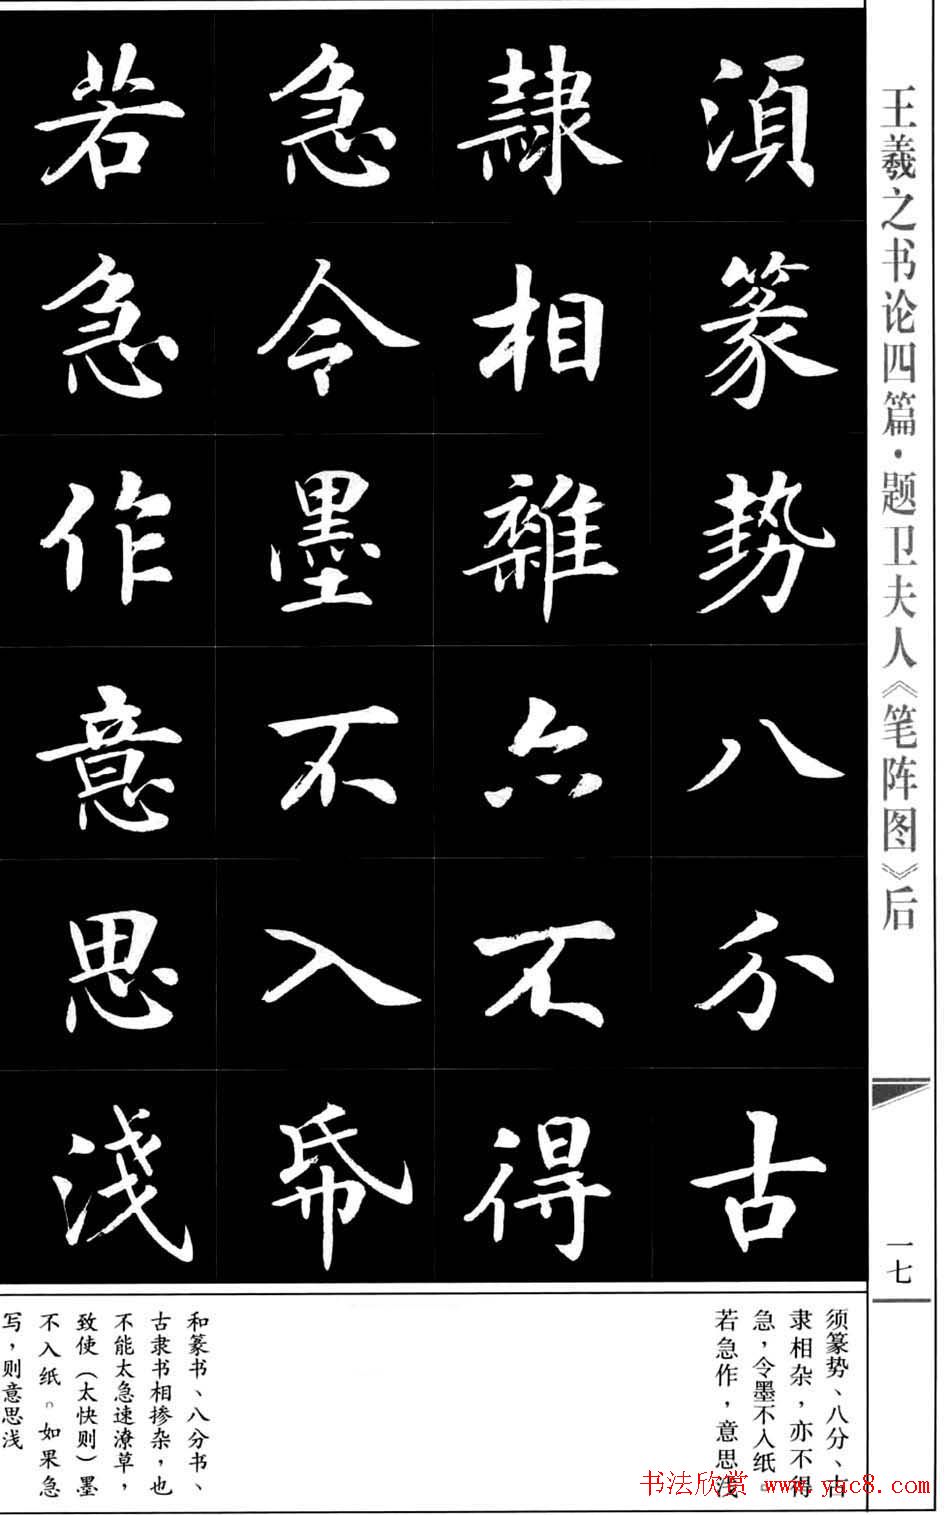 王羲之书论四篇·题卫夫人《笔阵图》后
一七
須篆勢八分古
隸相雜亦不得
急令墨不入帋
若急作意思淺
须篆势、八分、古
隶相杂，亦不得
急，令墨不入纸。
若急作，意思浅
和篆书、八分书、
古隶书相掺杂，也
不能太急速潦草，
致使（太快则）墨
不入纸。如果急
写，则意思浅
书法欣赏 www.yac8.com